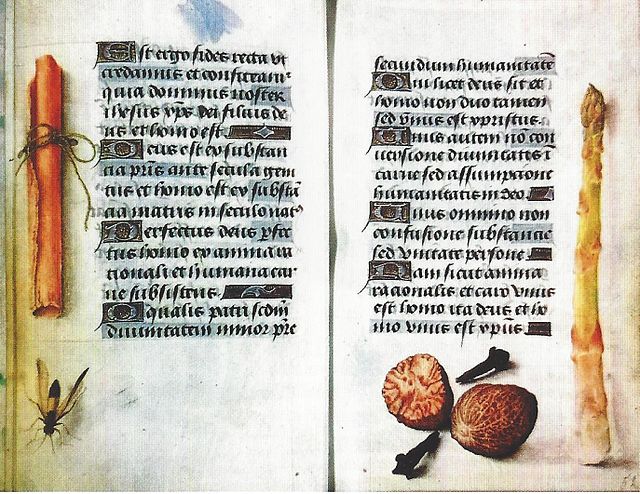 Est ergo fides recta vt
credamus et confiteamʳ
quia dominus noster
ihesus xp̄s dei filius de
us et homo est.
Deus est ex substan
cia pr̄is ante secula geni
tus et homo est ex substā
cia matris in seculo natꝰ
Perfectus deus ꝑfec
tus homo ex anima ra
cionali et humana car
ne subsistens.
Equalis patri scdm̄
diuinitatem minor pr̄e
secundum humanitatē
Qui licet deus sit et
homo non duo tamen
sed vnus est xpistus.
Unus autem nō con
uersione diuinitatis ī
carne sed assumpcione
humanitatis in deo.
Unus omnino non
confusione substancie
sed vnitate persone.
Nam sicut anima
racionalis et caro vnus
est homo ita deus et ho
mo vnus est xpūs.